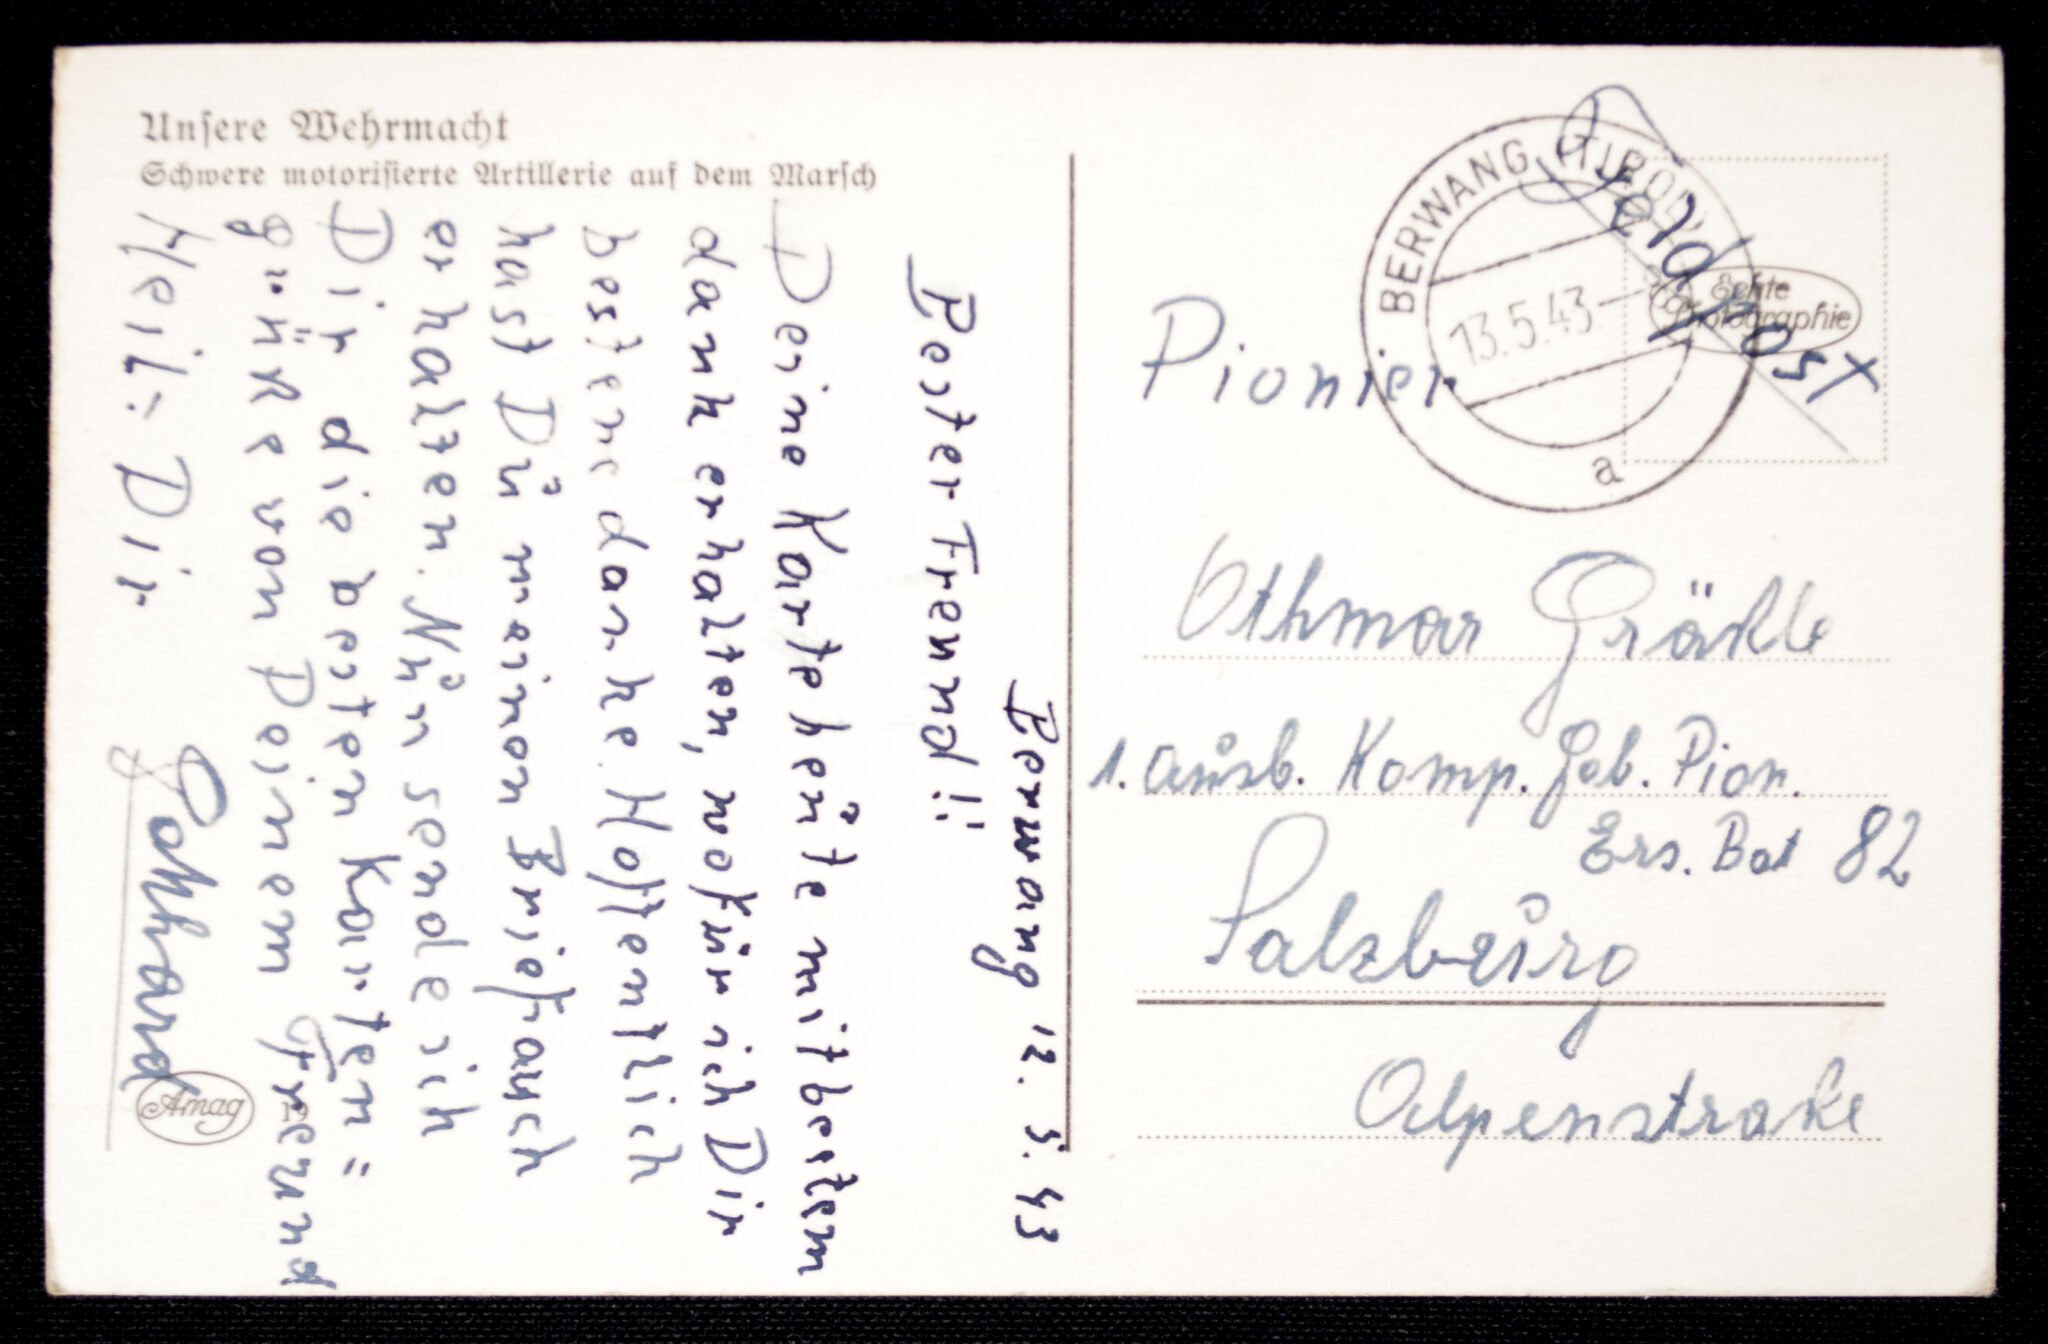 Unsere Wehrmacht
Schwere motorisierte Artillerie auf dem Marsch
Berwang 12. 5. 43
Bester Freund!!
Deine Karte heute mit bestem
dank erhalten, wofür ich Dir
bestens danke. Hoffentlich
hast Du meinen Brief auch
erhalten. Nun sende ich
Dir die besten Karten=
grüße von Deinem Freund
Heil: Dir
Arnag
BERWANG (TIROL)
13.5.43
a
Feldpost
Echte
Photographie
Pionier
Othmar
1. Ausb. Komp. Geb. Pion.
Ers. Bat 82
Salzburg
Alpenstraße